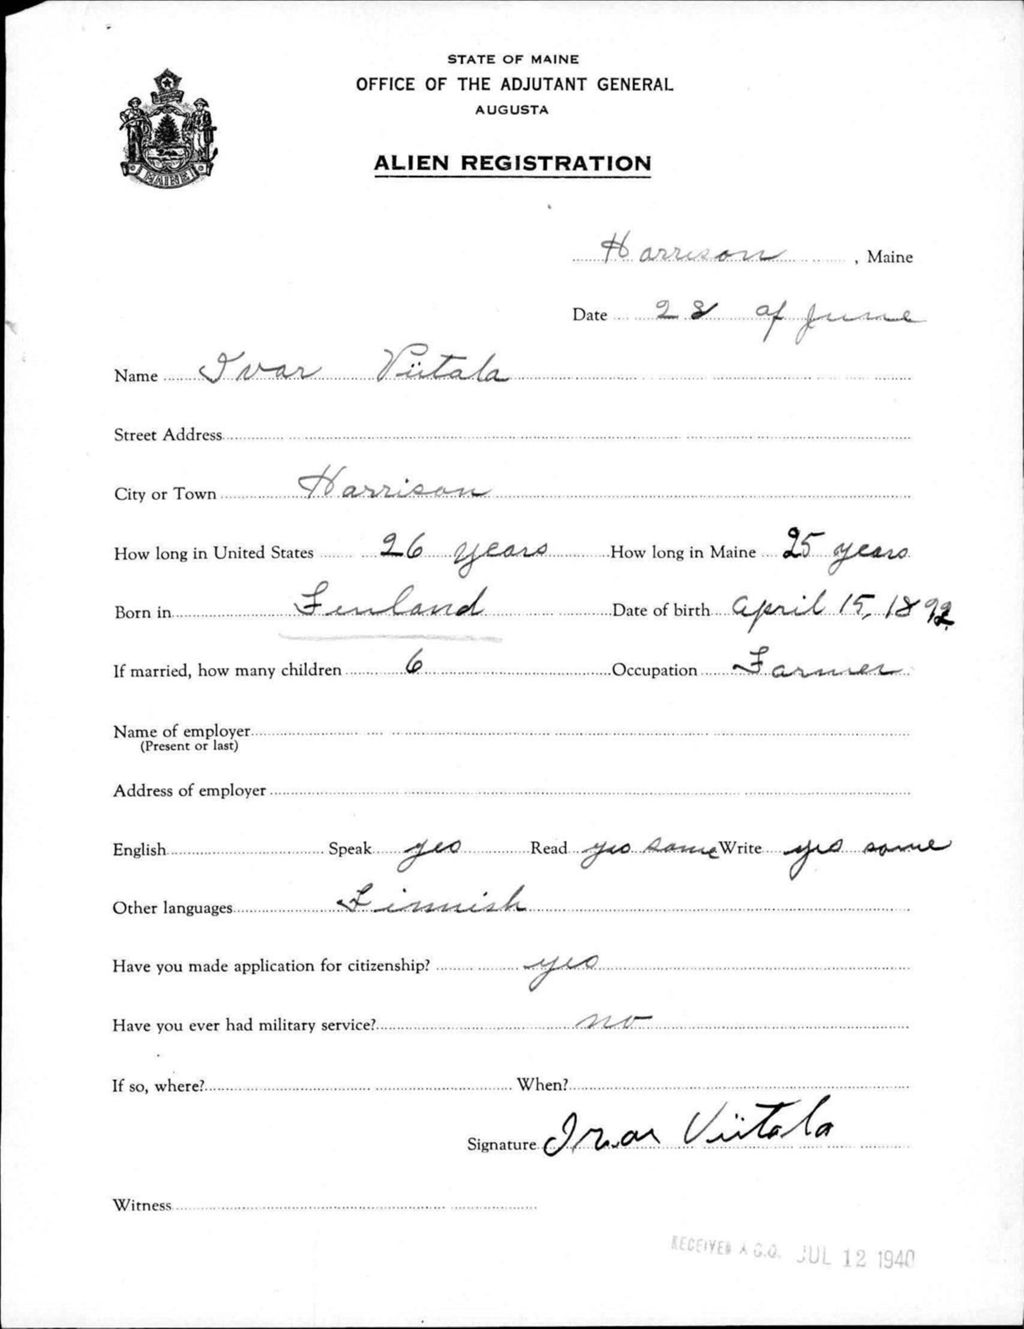 STATE OF MAINE
OFFICE OF THE ADJUTANT GENERAL
AUGUSTA
ALIEN REGISTRATION
MAINE
Harrison, Maine
Date 28 of June
Name Ivar Viitala
Street Address
City or Town Harrison
How long in United States 26 years How long in Maine 25 years
Born in Finland Date of birth April 15, 1892
If married, how many children 6 Occupation Farmer
Name of employer
(Present or last)
Address of employer
English Speak yes Read yes some Write yes some
Other languages Finnish
Have you made application for citizenship? yes
Have you ever had military service? no
If so, where? When?
Signature Ivar Viitala
Witness
RECEIVED A.G.O. JUL 12 1940